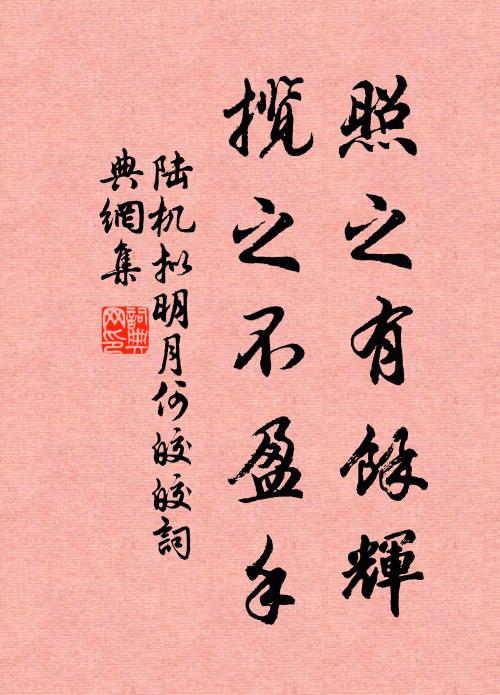 照之有餘輝
攬之不盈手
陆机拟明月何皎皎詞
典網集
詞典
网印